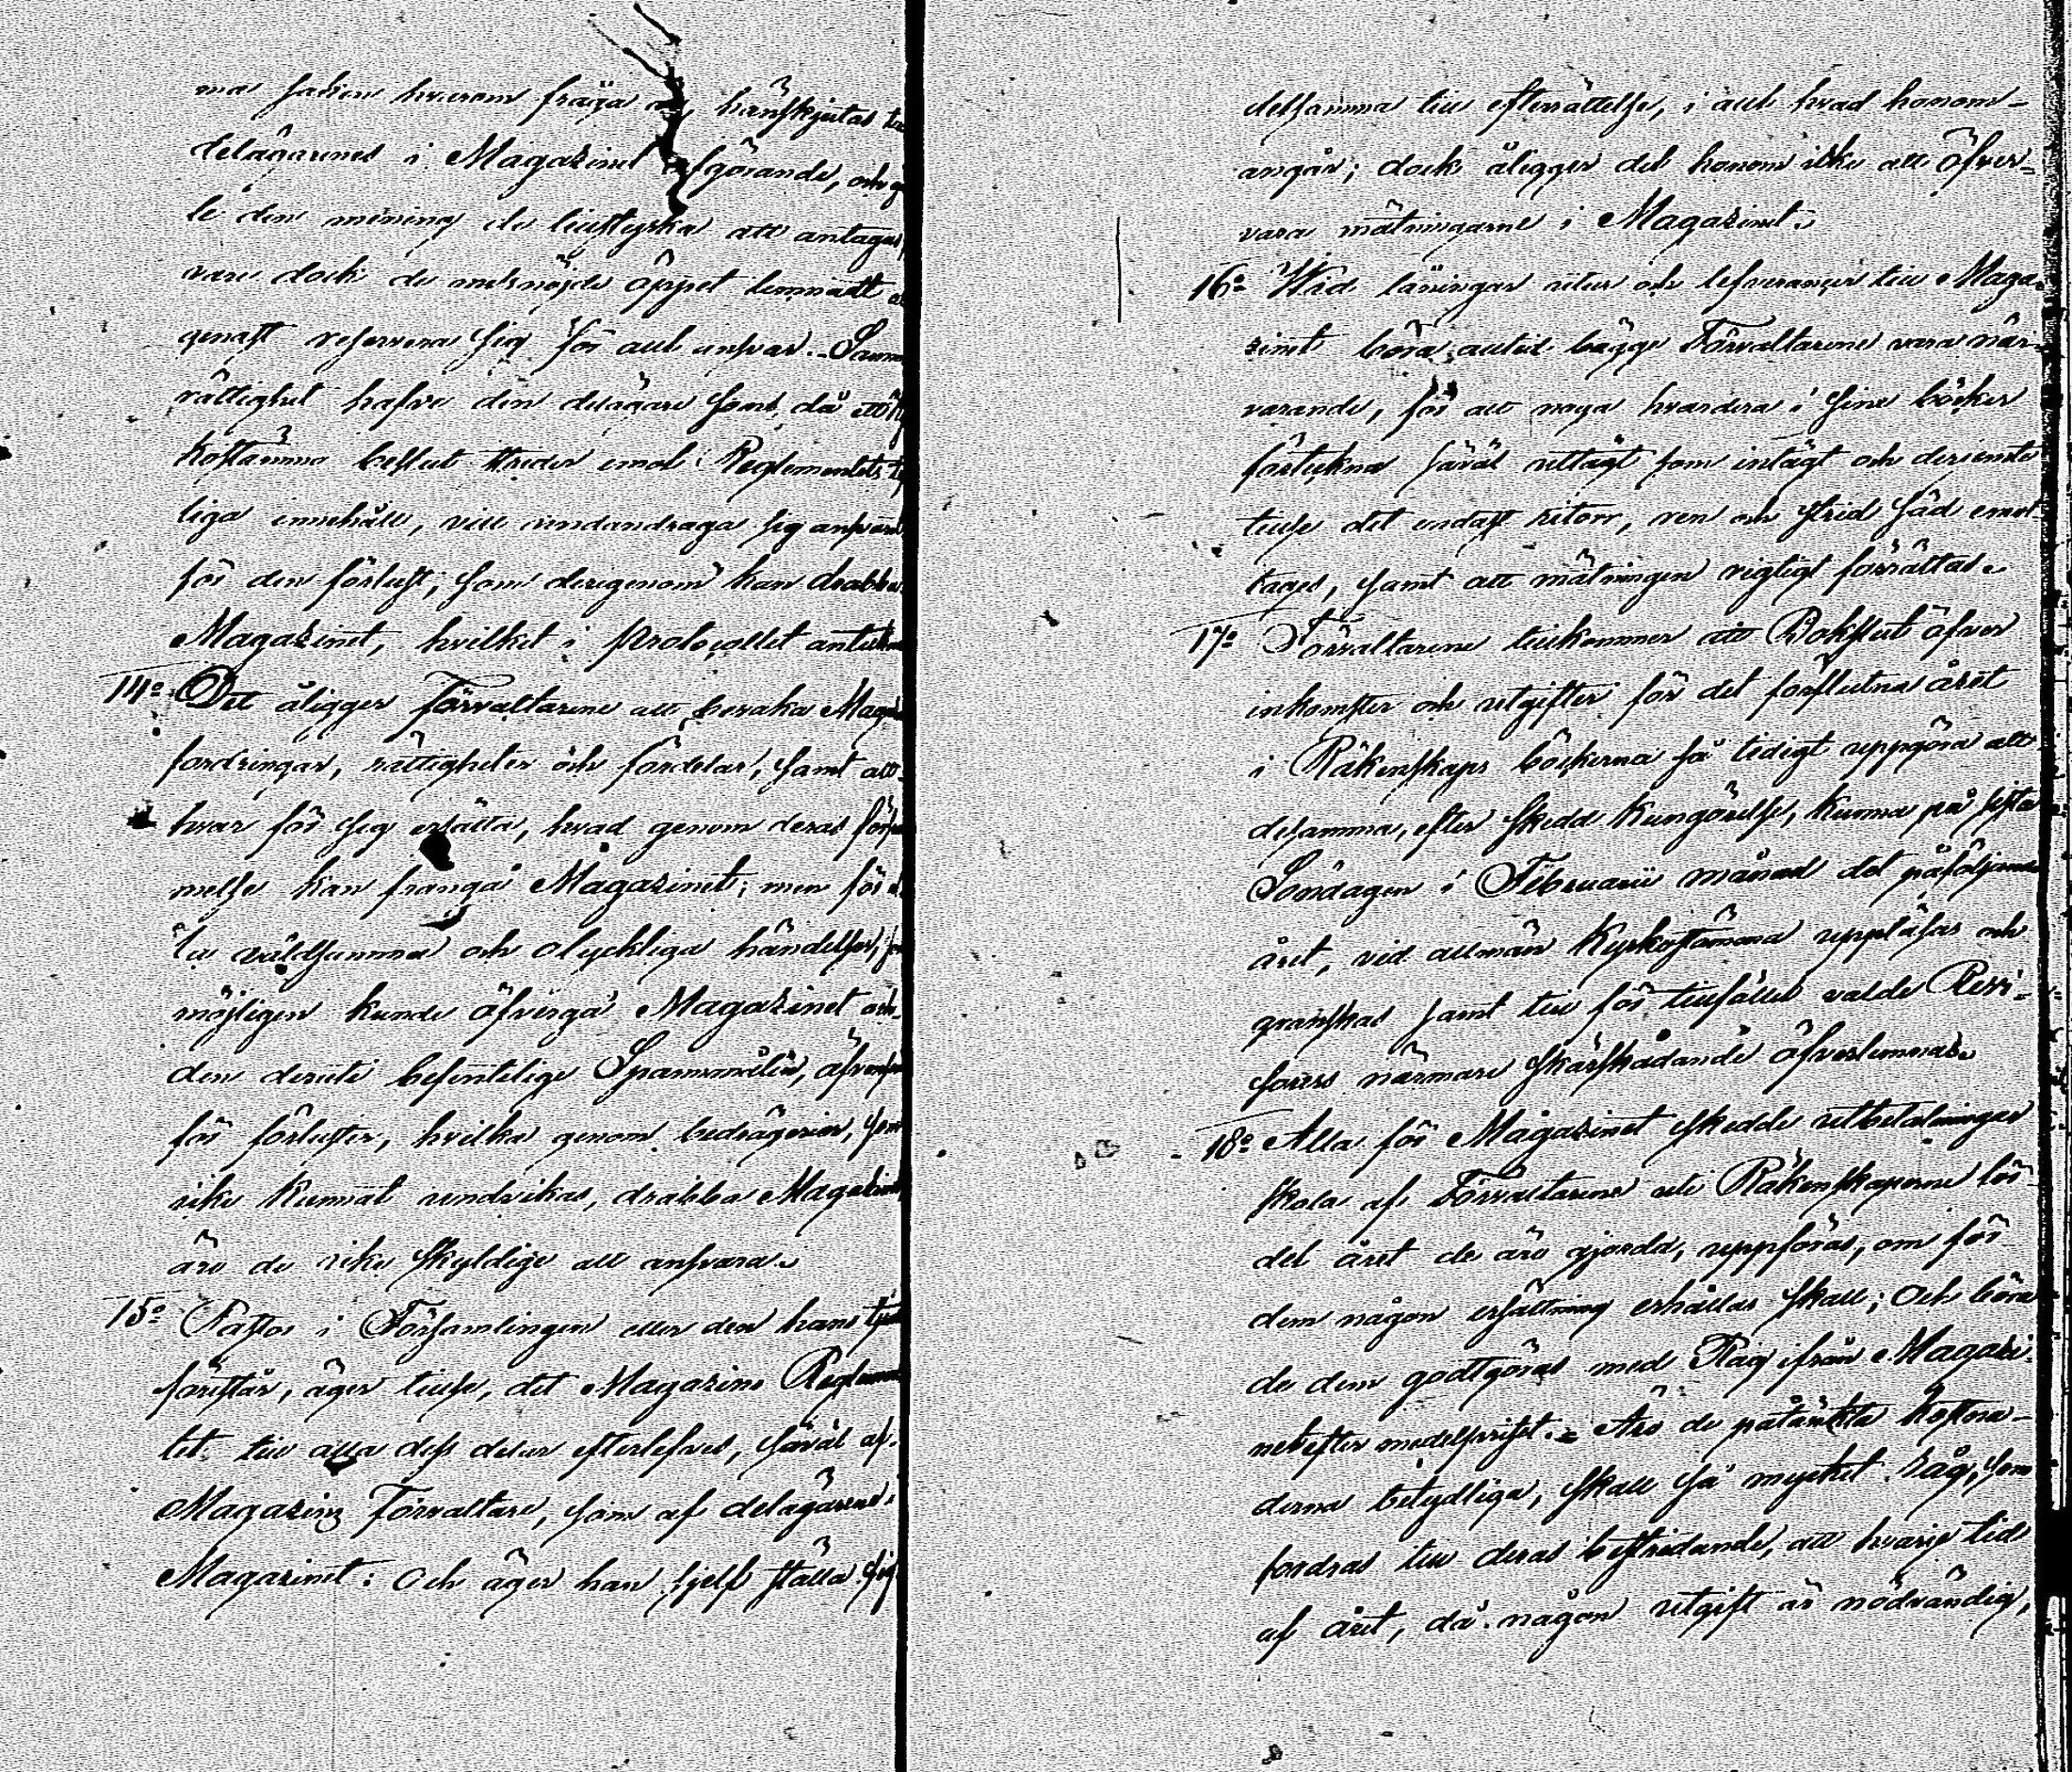 ma saken hvarom fråga är hänskjutas
delägarnes i Magazinet afgörande, och
le den mening de tillstyrka att antagas,
vare dock de missnöjde öppet lemnadt
genast reservera sig för allt ansvar.
rättighet hafve den delägare som, då ett
kostämma beslut strider emot Reglementets
liga innehåll, vill undandraga sig ansvar
för den förlust, som derigenom kan drabba
Magazinet, hvilket i Protocollet anteckna
14o Det åligger Förvaltarene att bevaka
fordringar, rättigheter och fördelar, samt att
hvar för sig ersätta, hvad genom deras
melse kan frångå Magazinet; men för
la våldsamma och olyckliga händelser,
möjligen kunde öfvergå Magazinet och
den deruti befintelige Spannmålen, äfvensom
för förluster, hvilka genom bedrägerier, som
icke kunnat undvikas, drabba Magazinet
äro de icke skyldige att ansvara.
15o Pastor i Församlingen eller den hans
förestår, äger tillse, det Magazins
tet till alla dess delar efterlefves, såväl af
Magazins Förvaltare, som af delägarne
Magazinet: Och äger han sjelf ställa sig
detsamma till efterrättelse, i allt hvad honom
angår; dock åligger det honom icke att öfver-
vara mätningarne i Magazinet.
16o Wid låningar utur och lefveranser till Maga-
zinet böra alltid bägge Förvaltarene vara när-
varande, för att noga hvardera i sine böcker
förteckna såväl uttagt som intagt och
tillse det endast torr, ren och strid säd emot
tages, samt att mätningen rigtigt förrättas.
17o Förvaltarene tillkommer att Bokslut öfver
inkomster och utgifter för det förflutna året
i Räkenskaps böckerna så tidigt uppgöra att
desamma, efter skedd kungörelse, kunna på sista
Söndagen i Februarii månad det påföljande
året, vid allmän Kyrkostämma uppläsas och
granskas samt till för tillfället valde Revi-
sorers närmare skärskådande öfverlemnas.
18o Alla för Magazinet skedde utbetalningar
skola af Förvaltarene uti Räkenskaperne för
det året de äro gjorda, uppföras, om för
dem någon ersättning erhållas skall; Och böra
de dem godtgöras med Råg ifrån Magazi-
net efter medelpriset. Äro de påtänkta kostna-
derna betydliga, skall så mycket Råg, som
fordras till deras bestridande, all hvarje tid
af året, då någon utgift är nödvändig,